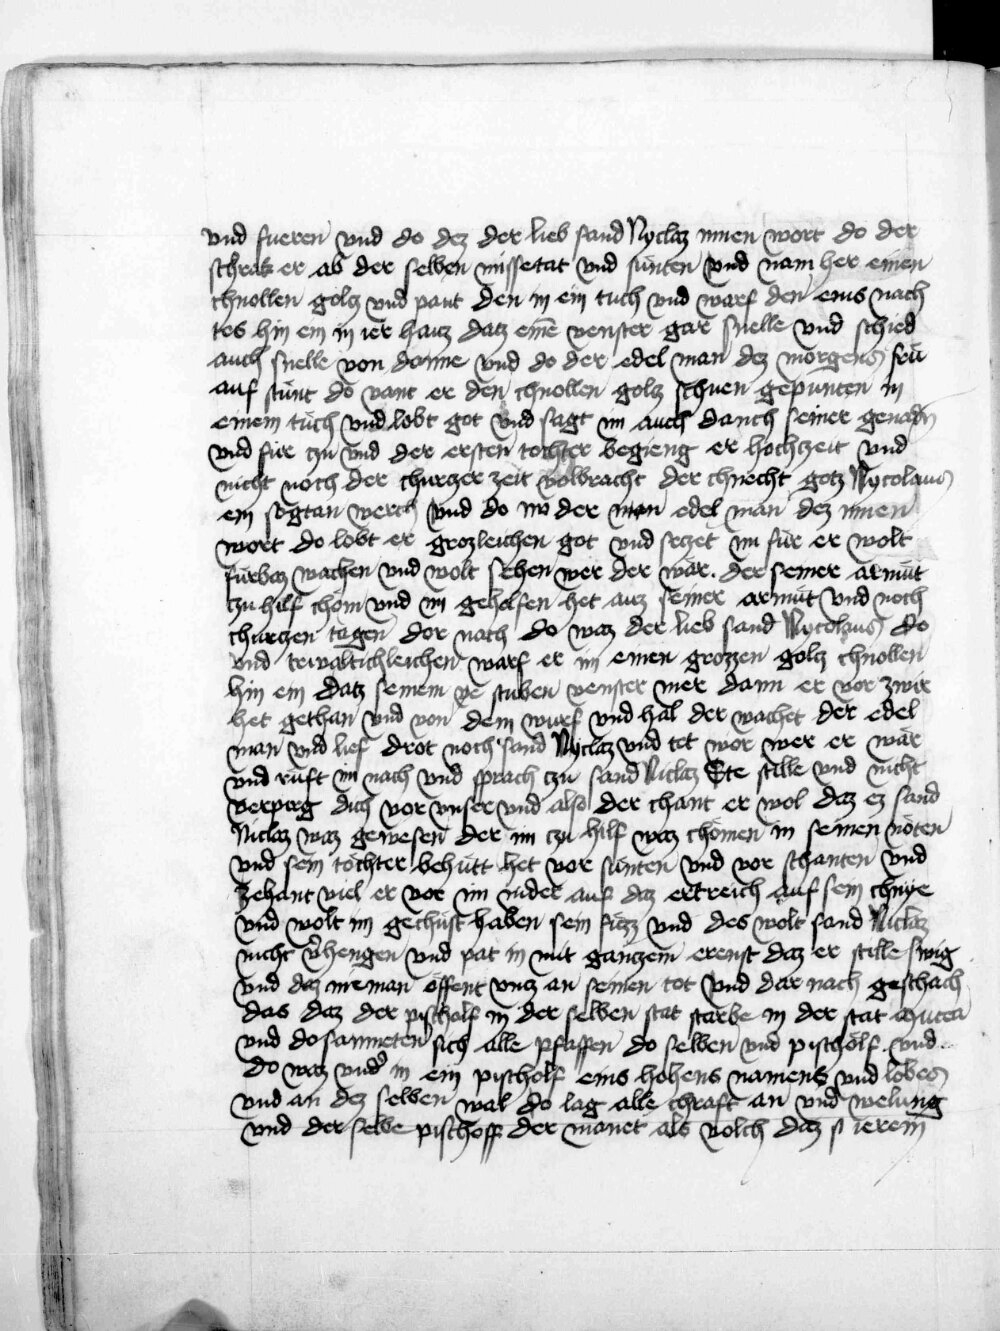 vnd fueren vnd do dez der lieb sand Nyclaz innen wort do der
schrak er ab der selben missetat vnd sünten vnd nam her einen
chnollen golcz vnd pant den in ein tuch vnd warf den eins nach
tes hin ein in ier haus datz eine venster gar snelle vnd schied
auch snelle von danne vnd do der edel man dez morgens frü
auf stünt do vant er den chnollen golcz schuen gepunten in
einem tüch vnd lobt got vnd sagt im auch danch seiner genadn
vnd für czu vnd der ersten tochter begieng er hochzeit vnd
nicht noch der churczer zeit volbracht der chnecht gotz Nycolaus
ein sogtan werch vnd do nv der man edel man dez innen
wort do lobt er grozleichen got vnd seczet im für er wolt
fürbaz wachen vnd wolt sehen wer der wär. der seiner armüt
czu hilf chöm vnd im geholfen het auz seiner armüt vnd noch
churczen tagen dor nach do waz der lieb sand Nycolaus do
vnd triualtichleichen warf er im einen grozzen golcz chnollen
hin ein datz seinem stuben venster mer dann er vor zwir
het gethan vnd von dem wurf vnd hal der wachet der edel
man vnd lief drot noch sand Nyclaz vnd tet wor wer er wär
vnd rüft im nach vnd sprach czu sand Niclaz Ste stille vnd nicht
verpirg dich vor vnser vnd also der chant er wol daz ez sand
Niclaz waz gewesen der im czu hilf waz chömen in seinen nöten
vnd sein töchter behütt het vor sünten vnd vor schanten vnd
zehant viel er vor im nider auf daz ertreich auf sein chnye
vnd wolt im gechüst haben sein füzz vnd des wolt sand Niclaz
nicht v'hengen vnd pat in mit ganczem ernst daz er stille swig
vnd daz nieman öffent vncz an seinen tot vnd dar nach geschach
das daz der pischolf in der selben stat starbe in der stat Mirea
vnd do sannneten sich alle pfaffen do selben vnd pischölf vnd
do waz vnd' in ein pischolf eins hohens namens vnd lobes
vnd an dez selben wal do lag alle chraft an vnd welung
vnd der selbe pischoff der manet als volch daz si ierem